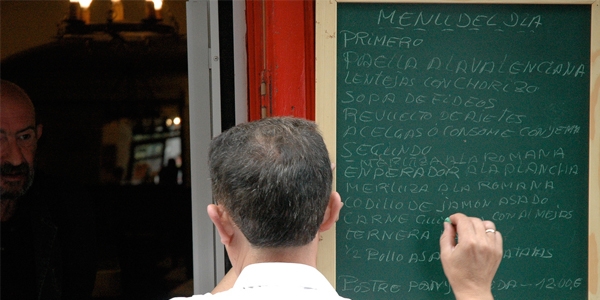 MENU DEL DIA
PRIMERO
PAELLA A LA VALENCIANA
LENTEJAS CON CHORIZO
SOPA DE FIDEOS
REVUELTO DE AJETES
ACELGAS Ó CONSOME CON YEMA
SEGUNDO
MERLUZA A LA ROMANA
EMPERADOR A LA PLANCHA
MERLUZA A LA ROMANA
CODILLO DE JAMON ASADO
CARNE CON ALMEJAS
TERNERA
1/2 POLLO ASA PATATAS
POSTRE PAN 12.00€